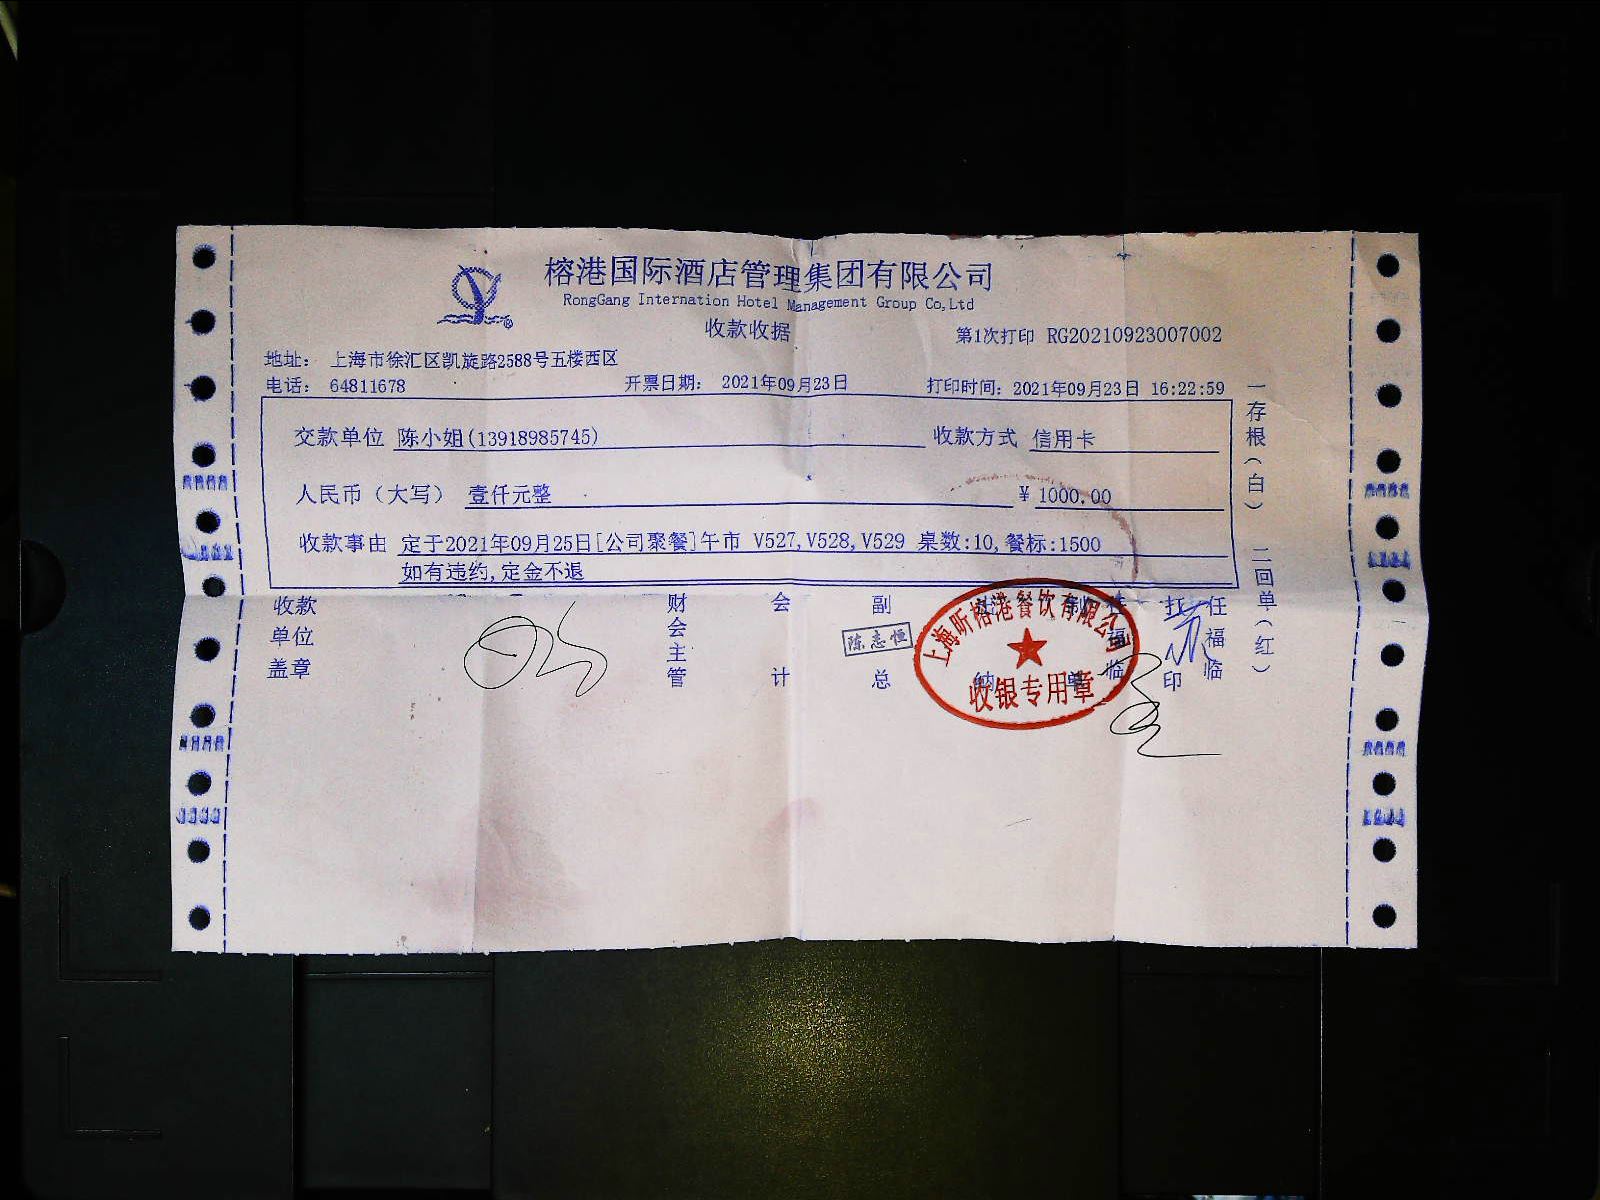 榕港国际酒店管理集团有限公司
RongGang Internation Hotel Management Group Co,Ltd
收款收据
第1次打印 RG20210923007002
地址: 上海市徐汇区凯旋路2588号五楼西区
电话: 64811678 开票日期: 2021年09月23日 打印时间: 2021年09月23日 16:22:59
交款单位 陈小姐(13918985745) 收款方式 信用卡
人民币（大写） 壹仟元整 ¥ 1000.00
收款事由 定于2021年09月25日[公司聚餐]午市 V527,V528,V529 桌数:10,餐标:1500
如有违约,定金不退
收款单位盖章
财会主管
会计
副总
陈志恒
上海昕榕港餐饮有限公司
收银专用章
任福临
打印
任福临
一存根（白） 二回单（红）